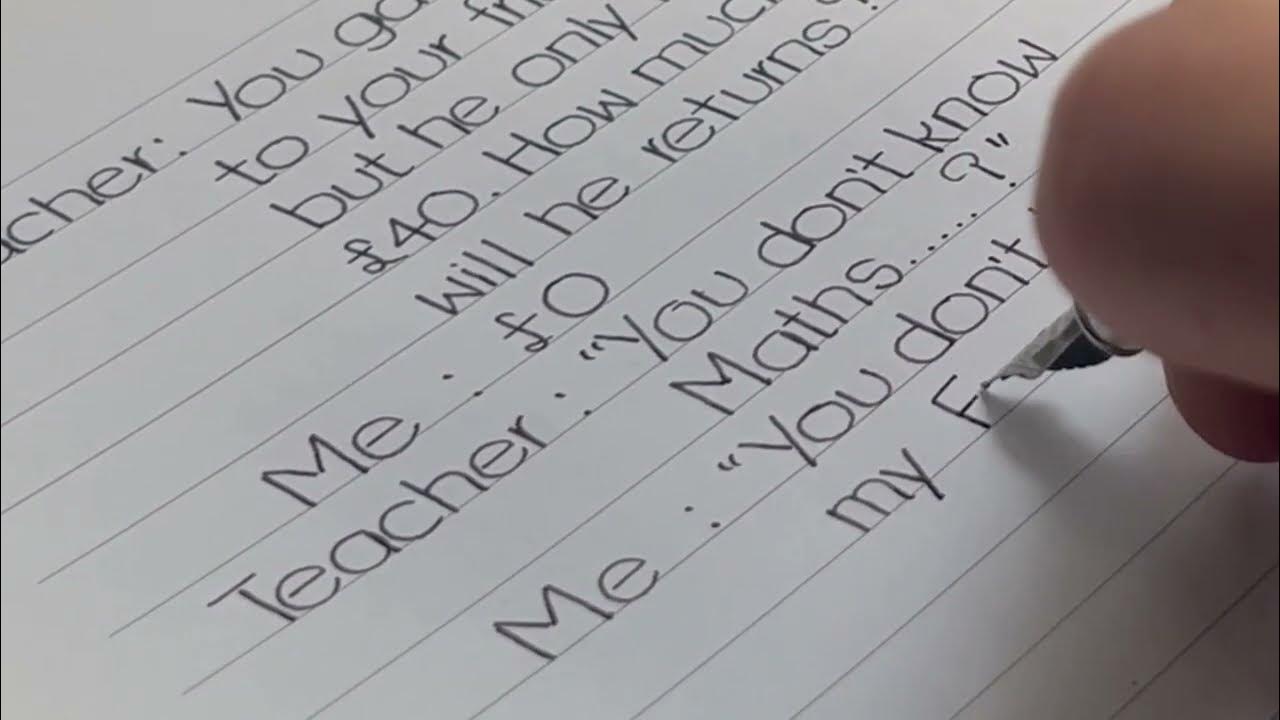 acher: You ga
to your fri
but he only
£40. How much
will he returns?
Me : £0
Teacher : "You don't know
Maths..... ?"
Me : "You don't
my F